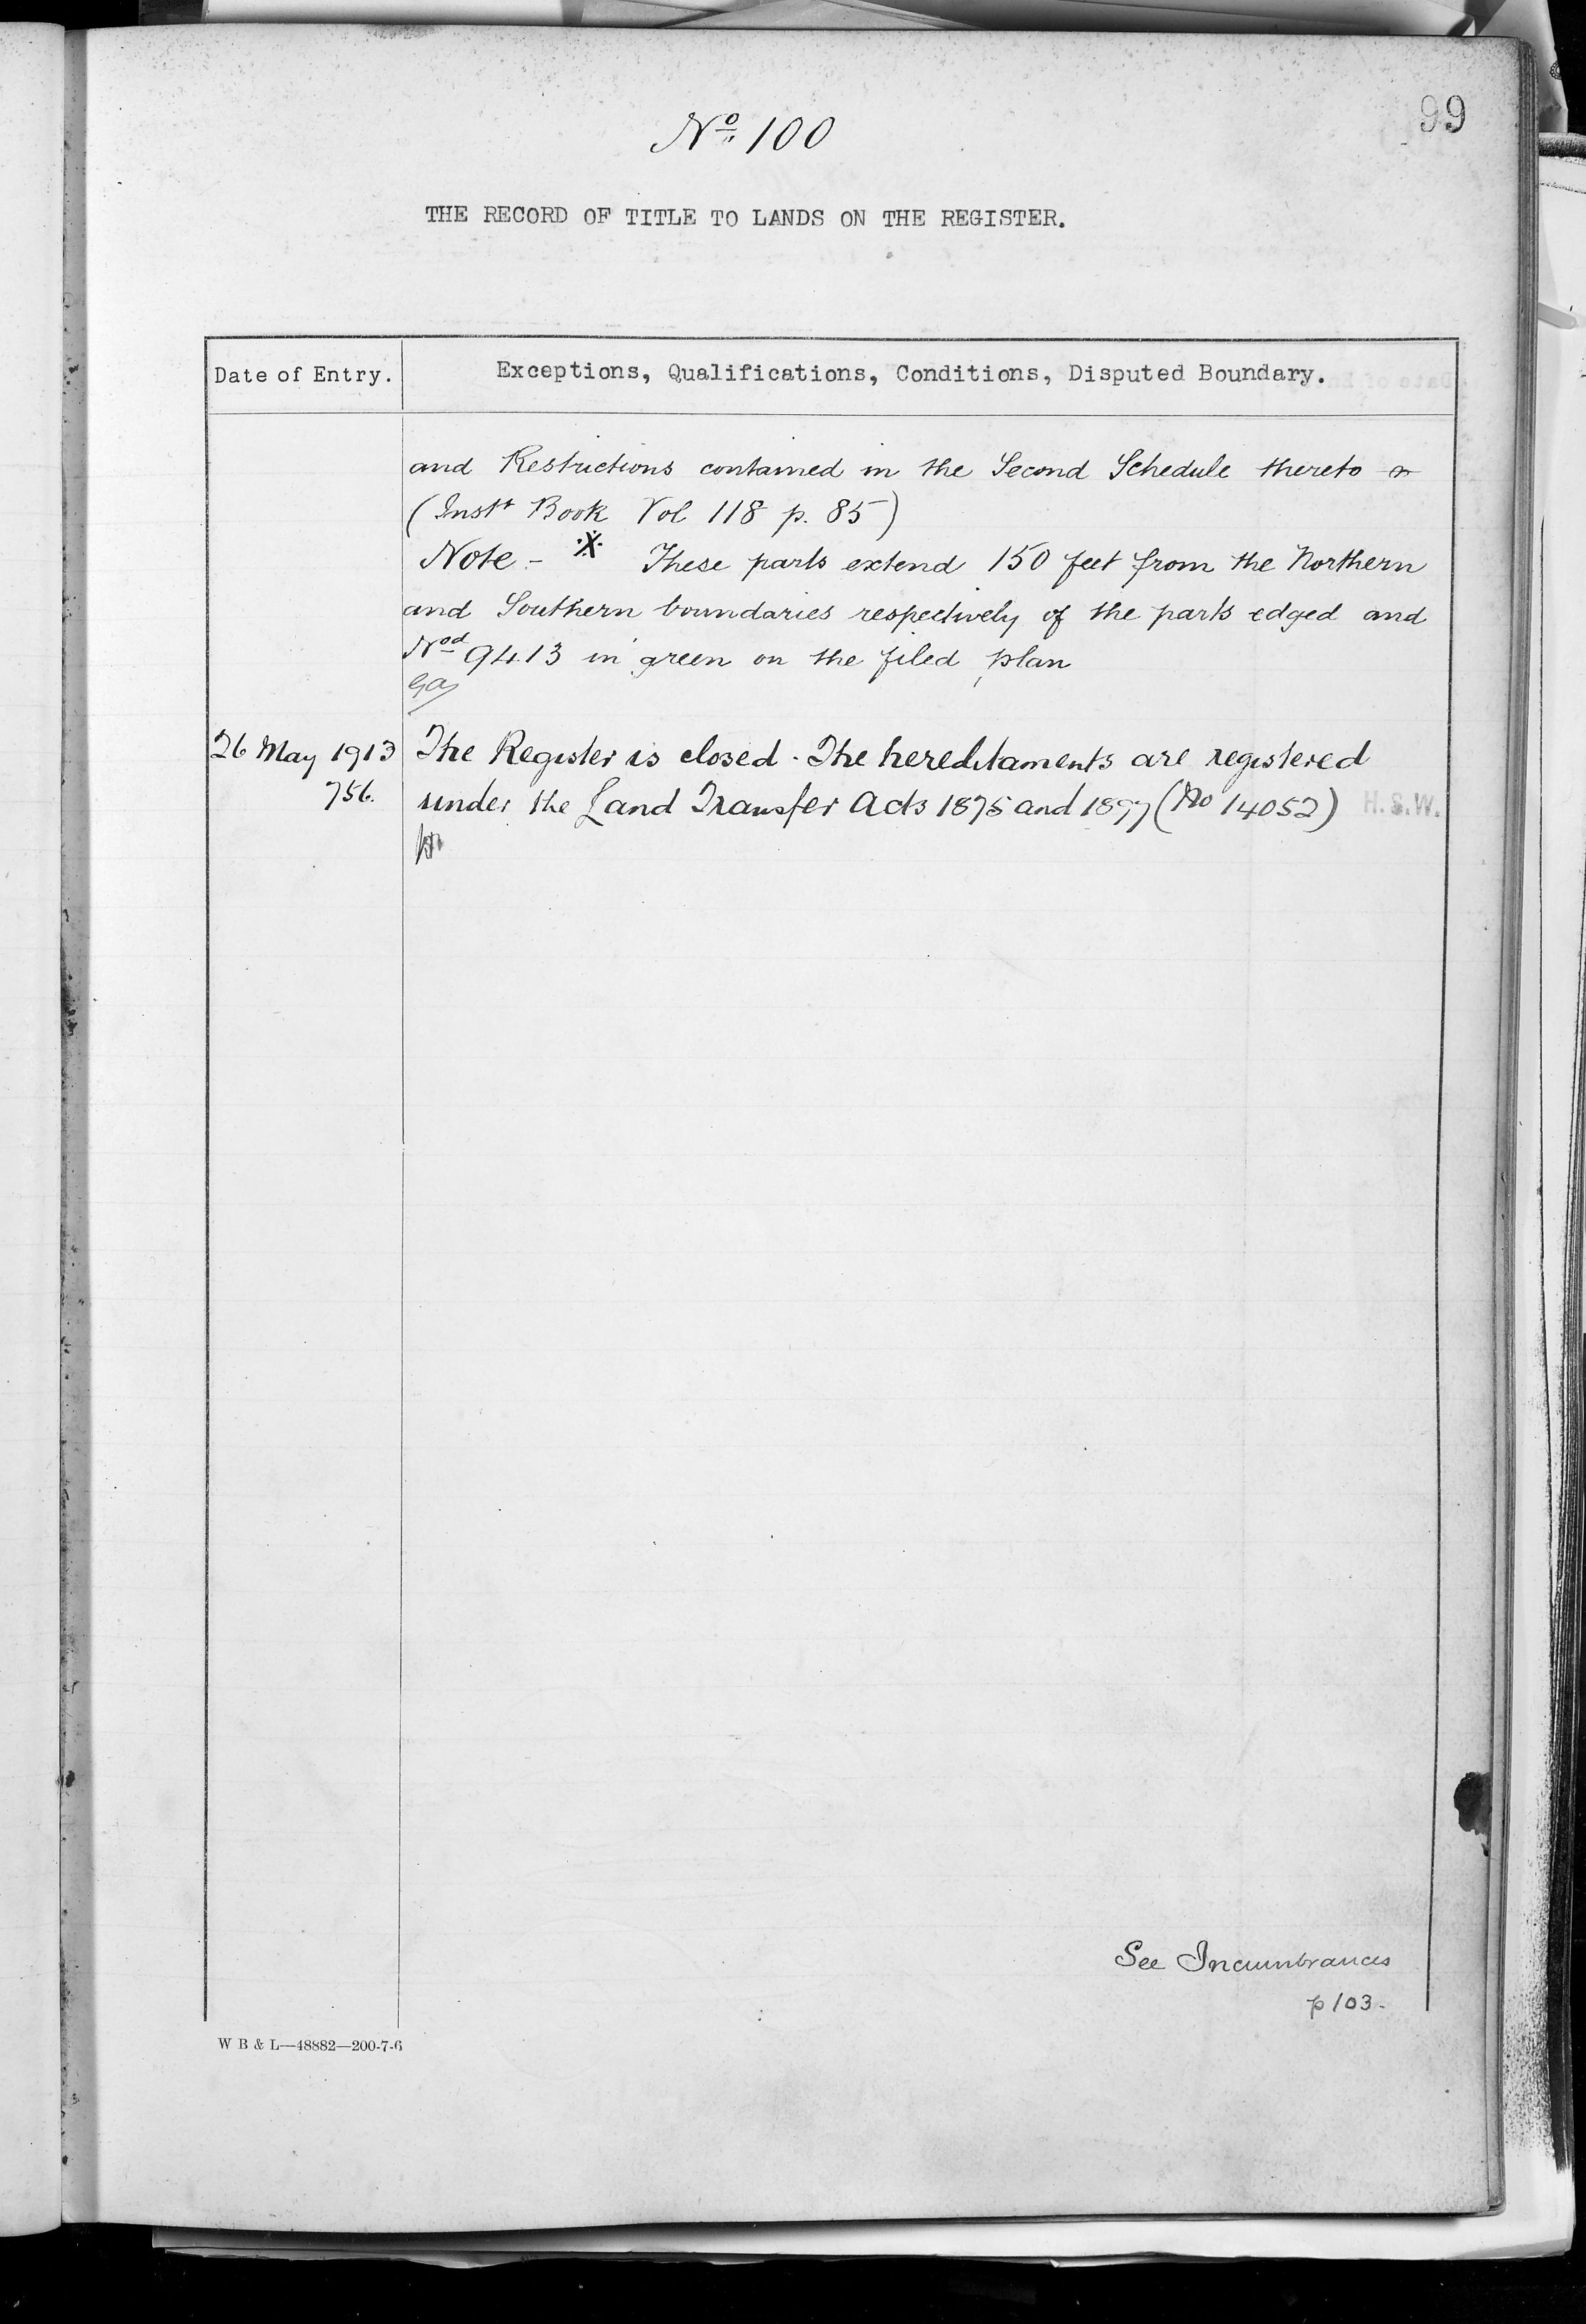 99
Nº 100
THE RECORD OF TITLE TO LANDS ON THE REGISTER.
Date of Entry.
Exceptions, Qualifications, Conditions, Disputed Boundary.
and Restrictions contained in the Second Schedule thereto
(Instt Book Vol 118 p. 85)
Note - ※ These parts extend 150 feet from the Northern
and Southern boundaries respectively of the parts edged and
Nod 9413 in green on the filed plan
26 May 1913 The Register is closed. The hereditaments are registered
756. under the Land Transfer Acts 1875 and 1897 (No 14052) H.S.W.
See Incumbrances
p 103.
W B & L—48882—200-7-6